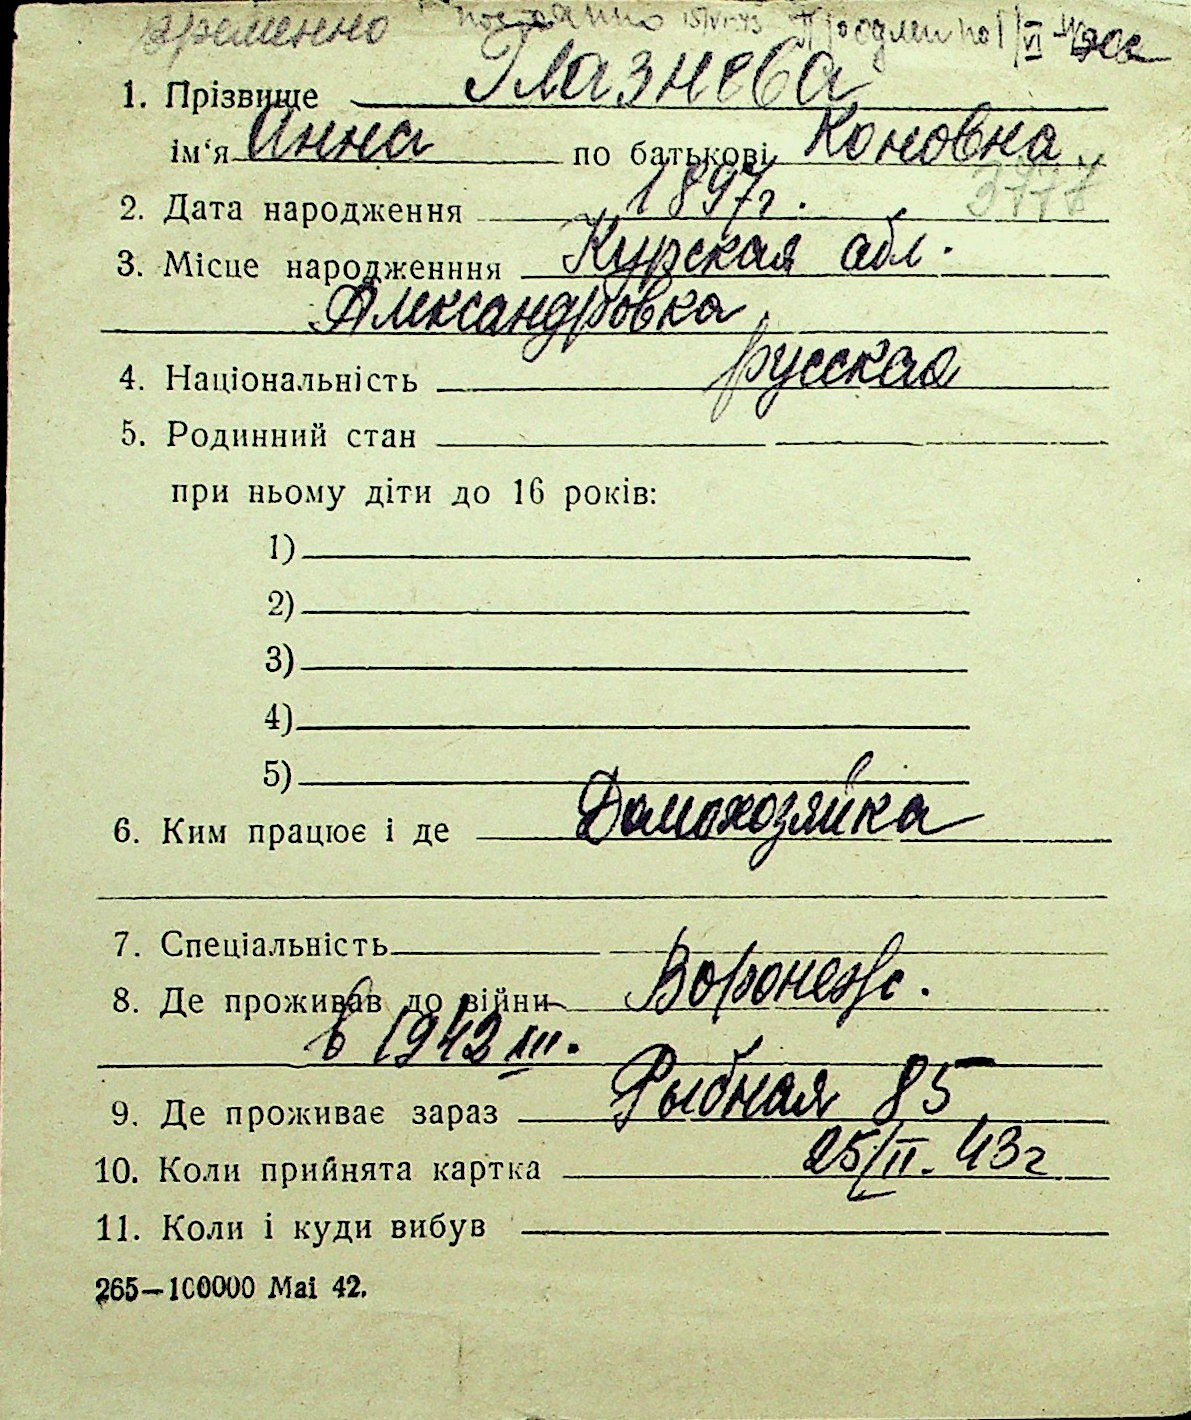 временно постоянно 15/VI-43 Продлен по 1/VI
1. Прізвище Глазнева
ім‘я Анна по батькові Кононвна
3777
2. Дата народження 1897г.
3. Місце народженння Курская обл.
Александровка
4. Національність русская
5. Родинний стан
при ньому діти до 16 років:
1)
2)
3)
4)
5)
6. Ким працює і де Домохозяйка
7. Спеціальність
8. Де проживав до війни Воронеж.
в 1942 III.
9. Де проживає зараз Рыбная 85
10. Коли прийнята картка 25/II. 43г
11. Коли і куди вибув
265—100000 Mai 42.